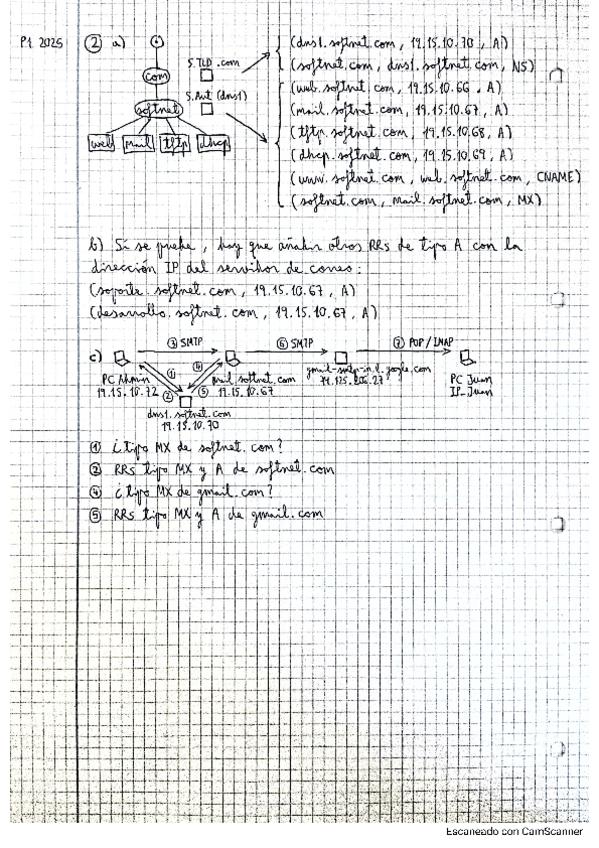 P1 2025
② a)
com
softnet
web mail tftp dhcp
S.TLD .com
S.Aut (dns1)
(dns1.softnet.com, 19.15.10.70, A)
(softnet.com, dns1.softnet.com, NS)
(web.softnet.com, 19.15.10.66, A)
(mail.softnet.com, 19.15.10.67, A)
(tftp.softnet.com, 19.15.10.68, A)
(dhcp.softnet.com, 19.15.10.69, A)
(www.softnet.com, web.softnet.com, CNAME)
(softnet.com, mail.softnet.com, MX)
b) Si se puede, hay que añadir otros RRs de tipo A con la
dirección IP del servidor de correo:
(soporte.softnet.com, 19.15.10.67, A)
(desarrollo.softnet.com, 19.15.10.67, A)
c) ③ SMTP ⑥ SMTP ⑦ POP/IMAP
① ④ ② ⑤
PC Admin
19.15.10.72
mail.softnet.com
19.15.10.67
gmail-smtp-in.l.google.com
PC Juan
IP_Juan
dns1.softnet.com
19.15.10.70
① ¿tipo MX de softnet.com?
② RRs tipo MX y A de softnet.com
④ ¿tipo MX de gmail.com?
⑤ RRs tipo MX y A de gmail.com
Escaneado con CamScanner